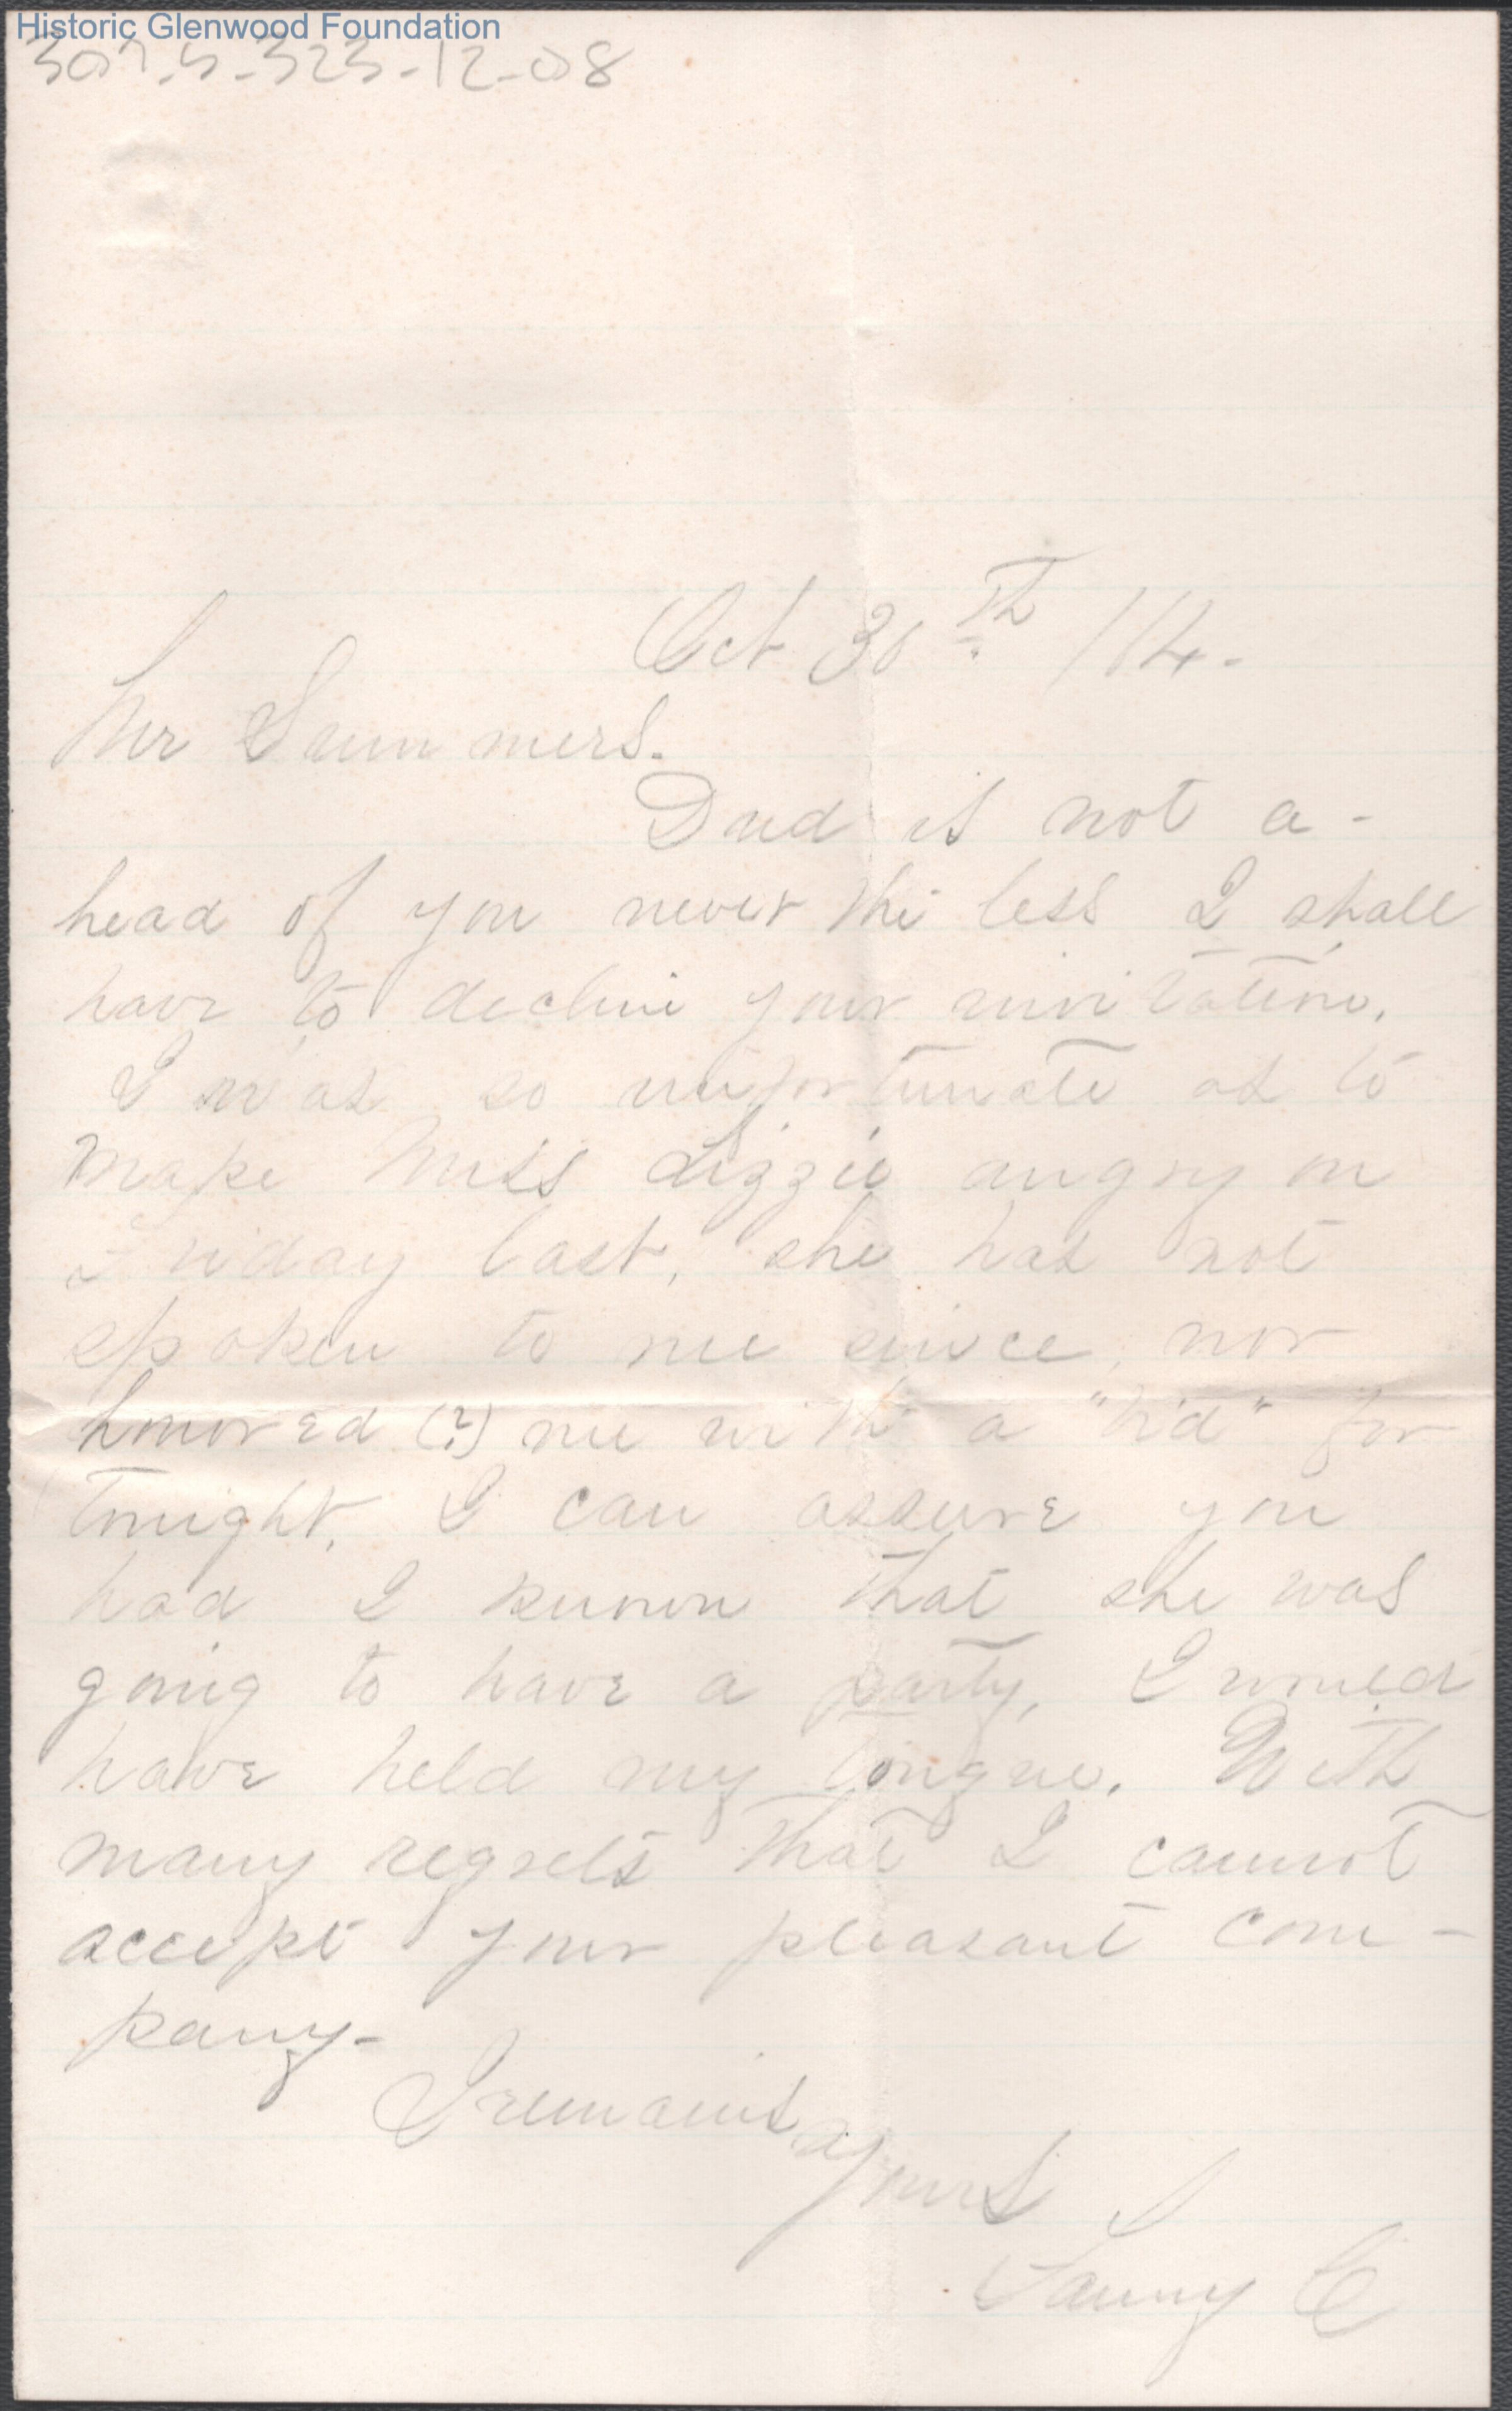 Historic Glenwood Foundation
307.5-323-12-08
Oct 30th /14.
Mr Summers.
Dud is not a-
head of you never the less I shall
have to decline your invitation.
I was so unfortunate as to
make Miss Lizzie angry on
Friday last, she has not
spoken to me since, nor
honored (?) me with a "bid" for
tonight. I can assure you
had I known that she was
going to have a party, I would
have held my tongue. With
many regrets that I cannot
accept your pleasant com-
pany-
I remains,
Yours
Fanny C